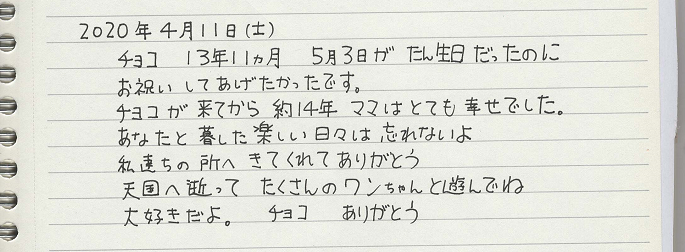 2020年4月11日(土)
チョコ 13年11ヵ月 5月3日が たん生日だったのに
お祝いしてあげたかったです。
チョコが来てから 約14年 ママはとても幸せでした。
あなたと暮した楽しい日々は忘れないよ
私達ちの所へ きてくれてありがとう
天国へ逝って たくさんのワンちゃんと遊んでね
大好きだよ。 チョコ ありがとう